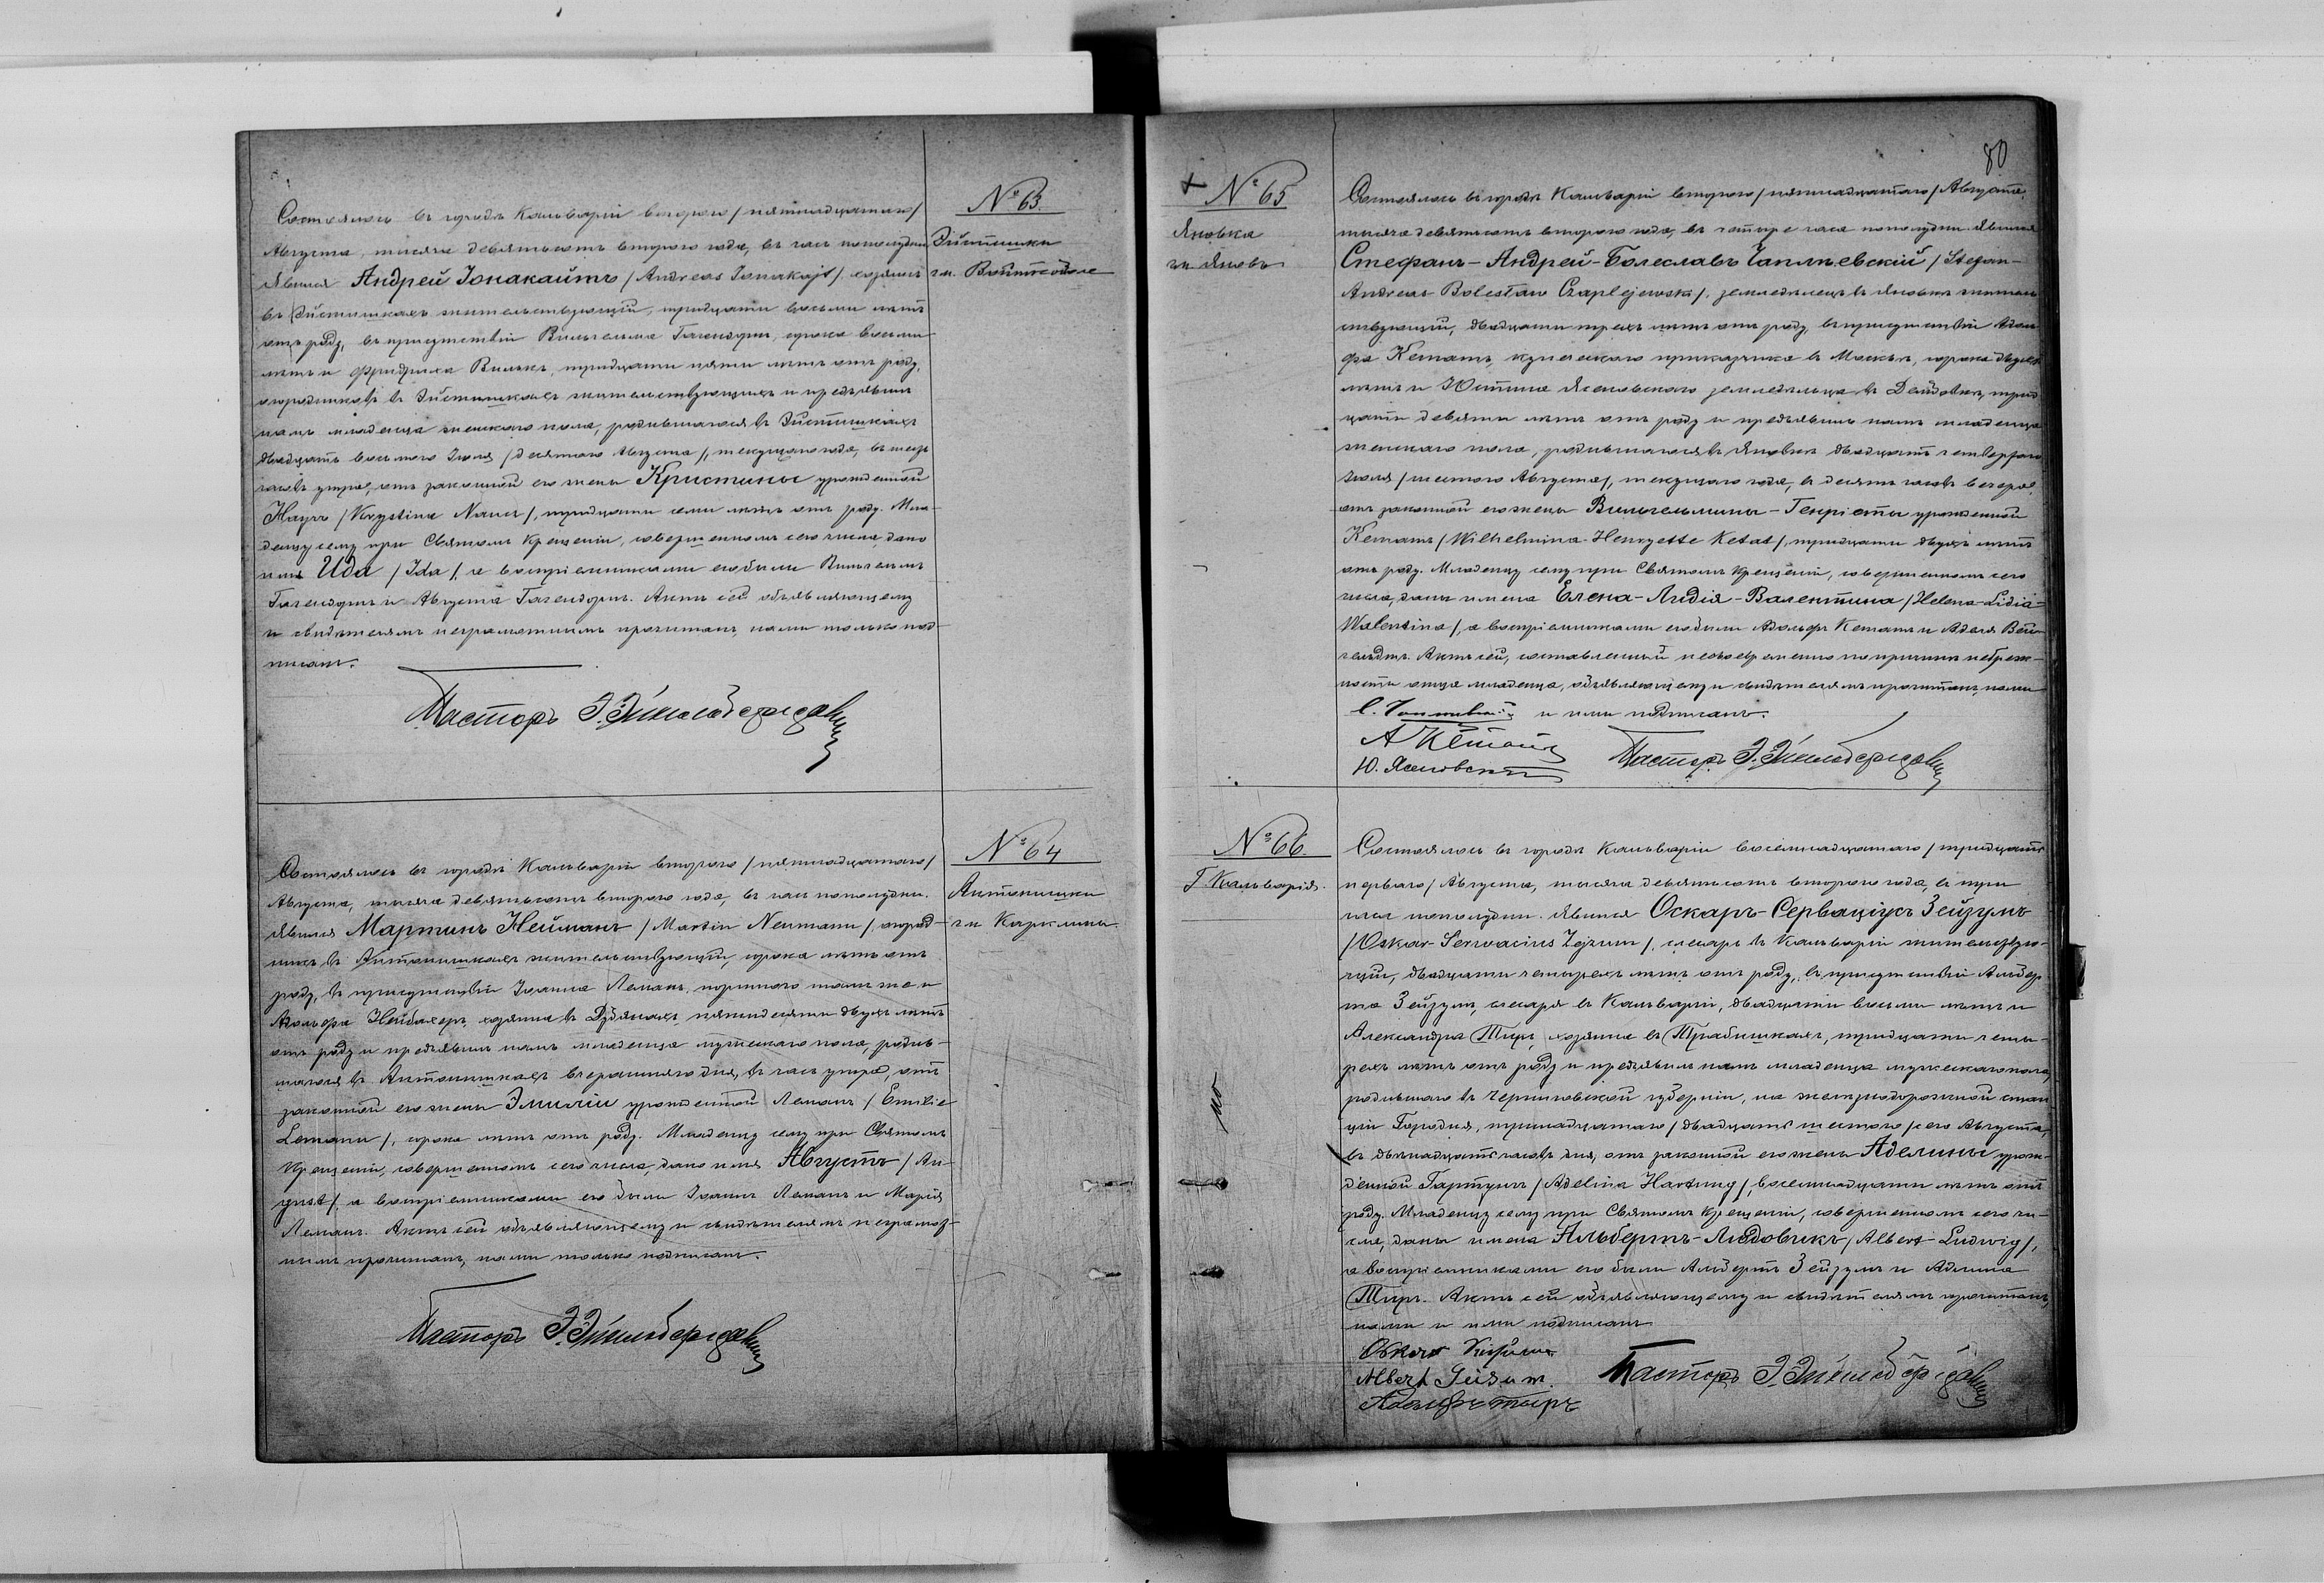 № 63.
Эйстишки
гм. Войткоболе
Состоялось въ городѣ Кальваріи второго /пятнадцатаго/
Августа, тысяча девятьсотъ второго года, въ часъ пополудни
Явился Андрей Іонакайтъ /Andreas Jonakajt/, хозяинъ
въ Эйстишкахъ жительствующій, тридцати восьми лѣтъ
отъ роду, въ присутствіи Вильгельма Гагендорнъ, сорока восьми
лѣтъ и Фридриха Вилькъ, тридцати пяти лѣтъ отъ роду,
огородниковъ въ Эйстишкахъ жительствующихъ и предъявилъ
намъ младенца женскаго пола, родившагося въ Эйстишкахъ
двадцать восьмого Іюля /десятаго Августа/, текущаго года, въ шесть
часовъ утра, отъ законной его жены Кристины урожденной
Науръ /Krystina Naur/, тридцати семи лѣтъ отъ роду. Мла-
денцу сему при Святомъ Крещеніи, совершенномъ сего числа, дано
имя Ида /Ida/, а воспріемниками его были Вильгельмъ
Гагендорнъ и Августа Гагендорнъ. Актъ сей объявляющему
и свидѣтелямъ неграмотнымъ прочитанъ, нами только под-
писанъ.
Пасторъ Э.
№ 64
Антонишки
гм. Кирклины
Состоялось въ городѣ Кальваріи второго /пятнадцатаго/
Августа, тысяча девятьсотъ второго года, въ часъ пополудни.
Явился Мартинъ Нейманъ /Martin Neumann/, огород-
никъ въ Антонишкахъ жительствующій, сорока лѣтъ отъ
роду, въ присутствіи Іоанна Леманъ, портного тамъ же и
Адольфа Нейбахеръ, хозяина въ пятидесяти двухъ лѣтъ
отъ роду и предъявилъ намъ младенца мужескаго пола, родив-
шагося въ Антонишкахъ вчерашняго дня, въ часъ утра, отъ
законной его жены Эмиліи урожденной Леманъ /Emilie
Lemann/, сорока лѣтъ отъ роду. Младенцу сему при Святомъ
Крещеніи, совершенномъ сего числа, дано имя Августъ /Au-
gust/, а воспріемниками его были Іоаннъ Леманъ и Марія
Леманъ. Актъ сей объявляющему и свидѣтелямъ неграмот-
нымъ прочитанъ, нами только подписанъ.
Пасторъ Э.
80
№ 65
Яновка
гм. Яновъ
Состоялось въ городѣ Кальваріи второго /пятнадцатаго/ Августа,
тысяча девятьсотъ второго года, въ четыре часа пополудни. Явился
Стефанъ-Андрей-Болеславъ Чаплѣевскій /Stefan-
Andreas-Bolesław Czaplejewski/, земледѣлецъ въ Яновкѣ житель-
ствующій, двадцати трехъ лѣтъ отъ роду, въ присутствіи Адоль-
фа Кетатъ, купеческаго прикащика въ Москвѣ, сорока двухъ
лѣтъ и Юстина Ясеновскаго земледѣльца въ трид-
цати девяти лѣтъ отъ роду и предъявилъ намъ младенца
женскаго пола, родившагося въ Яновкѣ двадцать четвертаго
Іюля /шестого Августа/, текущаго года, въ десять часовъ вечера,
отъ законной его жены Вильгельмины-Генріеты урожденной
Кетатъ /Wilhelmina-Henryette Ketat/, тридцати двухъ лѣтъ
отъ роду. Младенцу сему при Святомъ Крещеніи, совершенномъ сего
числа, даны имена Елена-Лидія-Валентина /Helena-Lidia-
Walentina/, а воспріемниками его были Адольфъ Кетатъ и Аделя
Актъ сей, составленный несвоевременно по причинѣ небреж-
ности отца младенца, объявляющему и свидѣтелямъ прочитанъ, нами
и ими подписанъ.
А Кетатъ
Ю. Ясеновскій
Пасторъ Э.
№ 66.
Г. Кальварія.
Состоялось въ городѣ Кальваріи восемнадцатаго /тридцать
перваго/ Августа, тысяча девятьсотъ второго года, въ три
часа пополудни. Явился Оскаръ-Серваціусъ Зейзумъ
/Oskar-Servacius Zejzum/, слесарь въ Кальваріи жительству-
ющій, двадцати четырехъ лѣтъ отъ роду, въ присутствіи Альбер-
та Зейзумъ, слесаря въ Кальваріи, двадцати восьми лѣтъ и
Александра Тиръ, хозяина въ Трабишкахъ, тридцати четы-
рехъ лѣтъ отъ роду и предъявилъ намъ младенца мужескаго пола,
родившаго въ Черниговской губерніи, на желѣзнодорожной стан-
ціи Городня, тринадцатаго /двадцать шестого/ сего Августа,
въ двѣнадцать часовъ дня, отъ законной его жены Аделины урож-
денной Гартунгъ /Adelina Hartung/, восемнадцати лѣтъ отъ
роду. Младенцу сему при Святомъ Крещеніи, совершенномъ сего чи-
сла, даны имена Альбертъ-Людовикъ /Albert-Ludwig/,
а воспріемниками его были Альбертъ Зейзумъ и Аделина
Тиръ. Актъ сей объявляющему и свидѣтелямъ прочитанъ,
нами и ими подписанъ
Oskar
Albert Seisum.
Пасторъ Э.